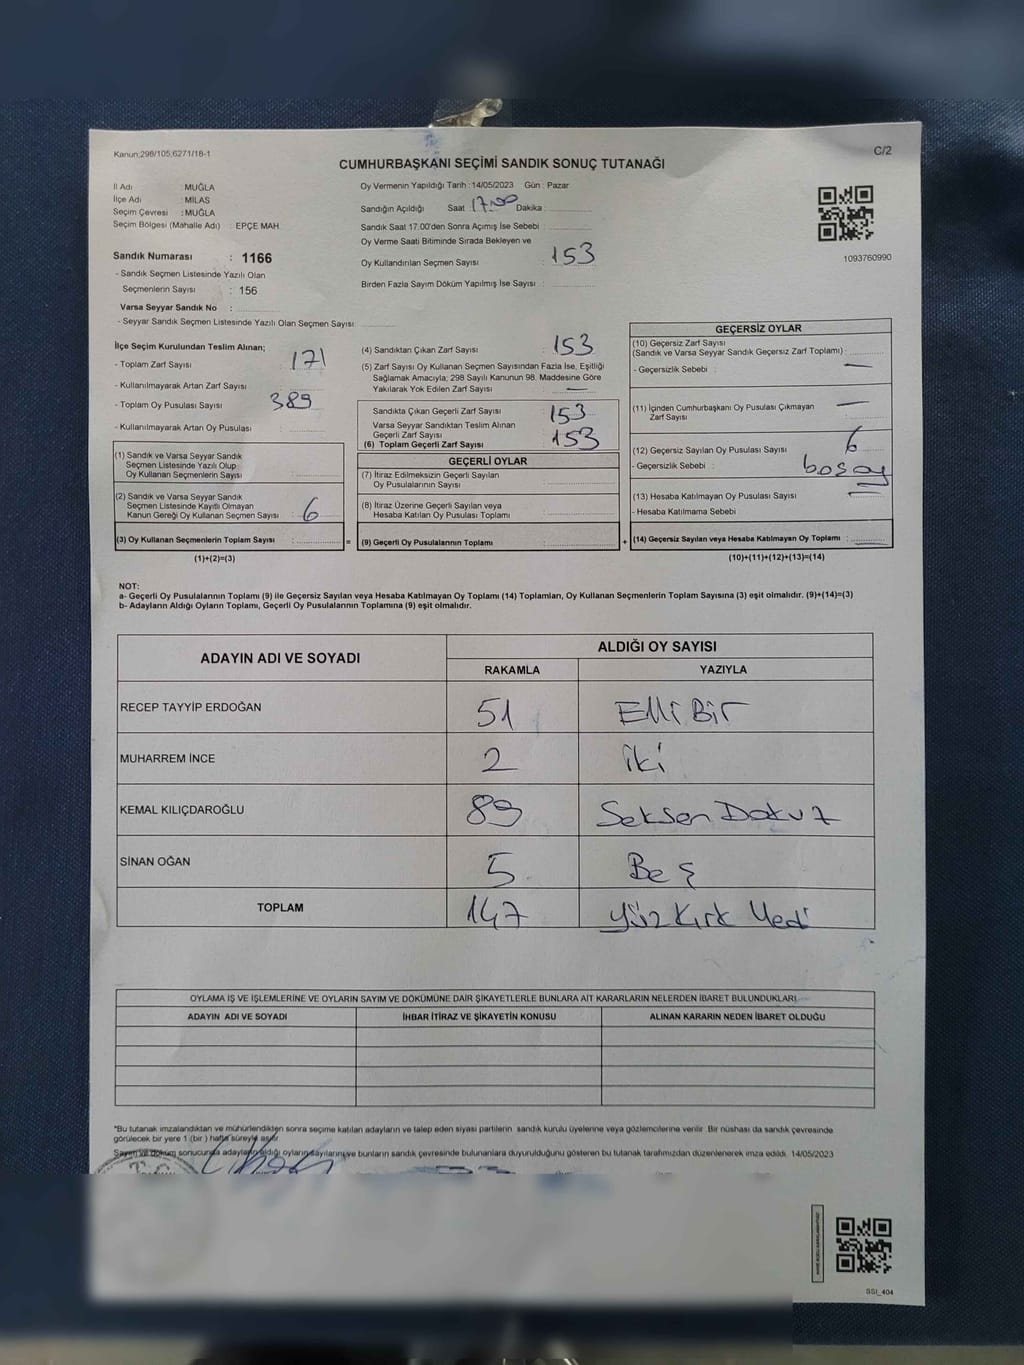 Kanun;298/105,6271/18-1
C/2
CUMHURBAŞKANI SEÇİMİ SANDIK SONUÇ TUTANAĞI
İl Adı : MUĞLA
İlçe Adı : MİLAS
Seçim Çevresi : MUĞLA
Seçim Bölgesi (Mahalle Adı) : EPÇE MAH
Sandık Numarası : 1166
- Sandık Seçmen Listesinde Yazılı Olan
Seçmenlerin Sayısı : 156
Varsa Seyyar Sandık No :
- Seyyar Sandık Seçmen Listesinde Yazılı Olan Seçmen Sayısı
Oy Vermenin Yapıldığı Tarih : 14/05/2023 Gün : Pazar
Sandığın Açıldığı Saat 17.00 Dakika
Sandık Saat 17.00'den Sonra Açımış İse Sebebi
Oy Verme Saati Bitiminde Sırada Bekleyen ve
Oy Kullandırılan Seçmen Sayısı : 153
Birden Fazla Sayım Döküm Yapılmış İse Sayısı :
1093760990
İlçe Seçim Kurulundan Teslim Alınan;
- Toplam Zarf Sayısı : 171
- Kullanılmayarak Artan Zarf Sayısı :
- Toplam Oy Pusulası Sayısı : 389
- Kullanılmayarak Artan Oy Pusulası :
(1) Sandık ve Varsa Seyyar Sandık
Seçmen Listesinde Yazılı Olup
Oy Kullanan Seçmenlerin Sayısı :
(2) Sandık ve Varsa Seyyar Sandık
Seçmen Listesinde Kayıtlı Olmayan
Kanun Gereği Oy Kullanan Seçmen Sayısı : 6
(3) Oy Kullanan Seçmenlerin Toplam Sayısı :
(1)+(2)=(3)
(4) Sandıktan Çıkan Zarf Sayısı : 153
(5) Zarf Sayısı Oy Kullanan Seçmen Sayısından Fazla İse, Eşitliği
Sağlamak Amacıyla; 298 Sayılı Kanunun 98. Maddesine Göre
Yakılarak Yok Edilen Zarf Sayısı : —
Sandıkta Çıkan Geçerli Zarf Sayısı : 153
Varsa Seyyar Sandıktan Teslim Alınan
Geçerli Zarf Sayısı
(6) Toplam Geçerli Zarf Sayısı : 153
GEÇERLİ OYLAR
(7) İtiraz Edilmeksizin Geçerli Sayılan
Oy Pusulalarının Sayısı :
(8) İtiraz Üzerine Geçerli Sayılan veya
Hesaba Katılan Oy Pusulası Toplamı :
= (9) Geçerli Oy Pusulalarının Toplamı :
GEÇERSİZ OYLAR
(10) Geçersiz Zarf Sayısı
(Sandık ve Varsa Seyyar Sandık Geçersiz Zarf Toplamı) :
- Geçersizlik Sebebi : —
(11) İçinden Cumhurbaşkanı Oy Pusulası Çıkmayan —
Zarf Sayısı
(12) Geçersiz Sayılan Oy Pusulası Sayısı : 6
- Geçersizlik Sebebi :
(13) Hesaba Katılmayan Oy Pusulası Sayısı : —
- Hesaba Katılmama Sebebi
+ (14) Geçersiz Sayılan veya Hesaba Katılmayan Oy Toplamı :
(10)+(11)+(12)+(13)=(14)
NOT:
a- Geçerli Oy Pusulalarının Toplamı (9) ile Geçersiz Sayılan veya Hesaba Katılmayan Oy Toplamı (14) Toplamları, Oy Kullanan Seçmenlerin Toplam Sayısına (3) eşit olmalıdır. (9)+(14)=(3)
b- Adayların Aldığı Oyların Toplamı, Geçerli Oy Pusulalarının Toplamına (9) eşit olmalıdır.
ADAYIN ADI VE SOYADI ALDIĞI OY SAYISI
RAKAMLA YAZIYLA
RECEP TAYYİP ERDOĞAN 51 Elli Bir
MUHARREM İNCE 2 iki
KEMAL KILIÇDAROĞLU 89 Seksen Dokuz
SİNAN OĞAN 5 Beş
TOPLAM 147 Yüz Kırk Yedi
OYLAMA İŞ VE İŞLEMLERİNE VE OYLARIN SAYIM VE DÖKÜMÜNE DAİR ŞİKAYETLERLE BUNLARA AİT KARARLARIN NELERDEN İBARET BULUNDUKLARI
ADAYIN ADI VE SOYADI İHBAR İTİRAZ VE ŞİKAYETİN KONUSU ALINAN KARARIN NEDEN İBARET OLDUĞU
*Bu tutanak imzalandıktan ve mühürlendikten sonra seçime katılan adayların ve talep eden siyasi partilerin sandık kurulu üyelerine veya gözlemcilerine verilir. Bir nüshası da sandık çevresinde
görülecek bir yere 1 (bir) hafta süreyle asılır
Sayım ve döküm sonucunda adayların aldığı oyların sayılarını ve bunların sandık çevresinde bulunanlara duyurulduğunu gösteren bu tutanak tarafımızdan düzenlenerek imza edildi. 14/05/2023
T.C.
SSI_404